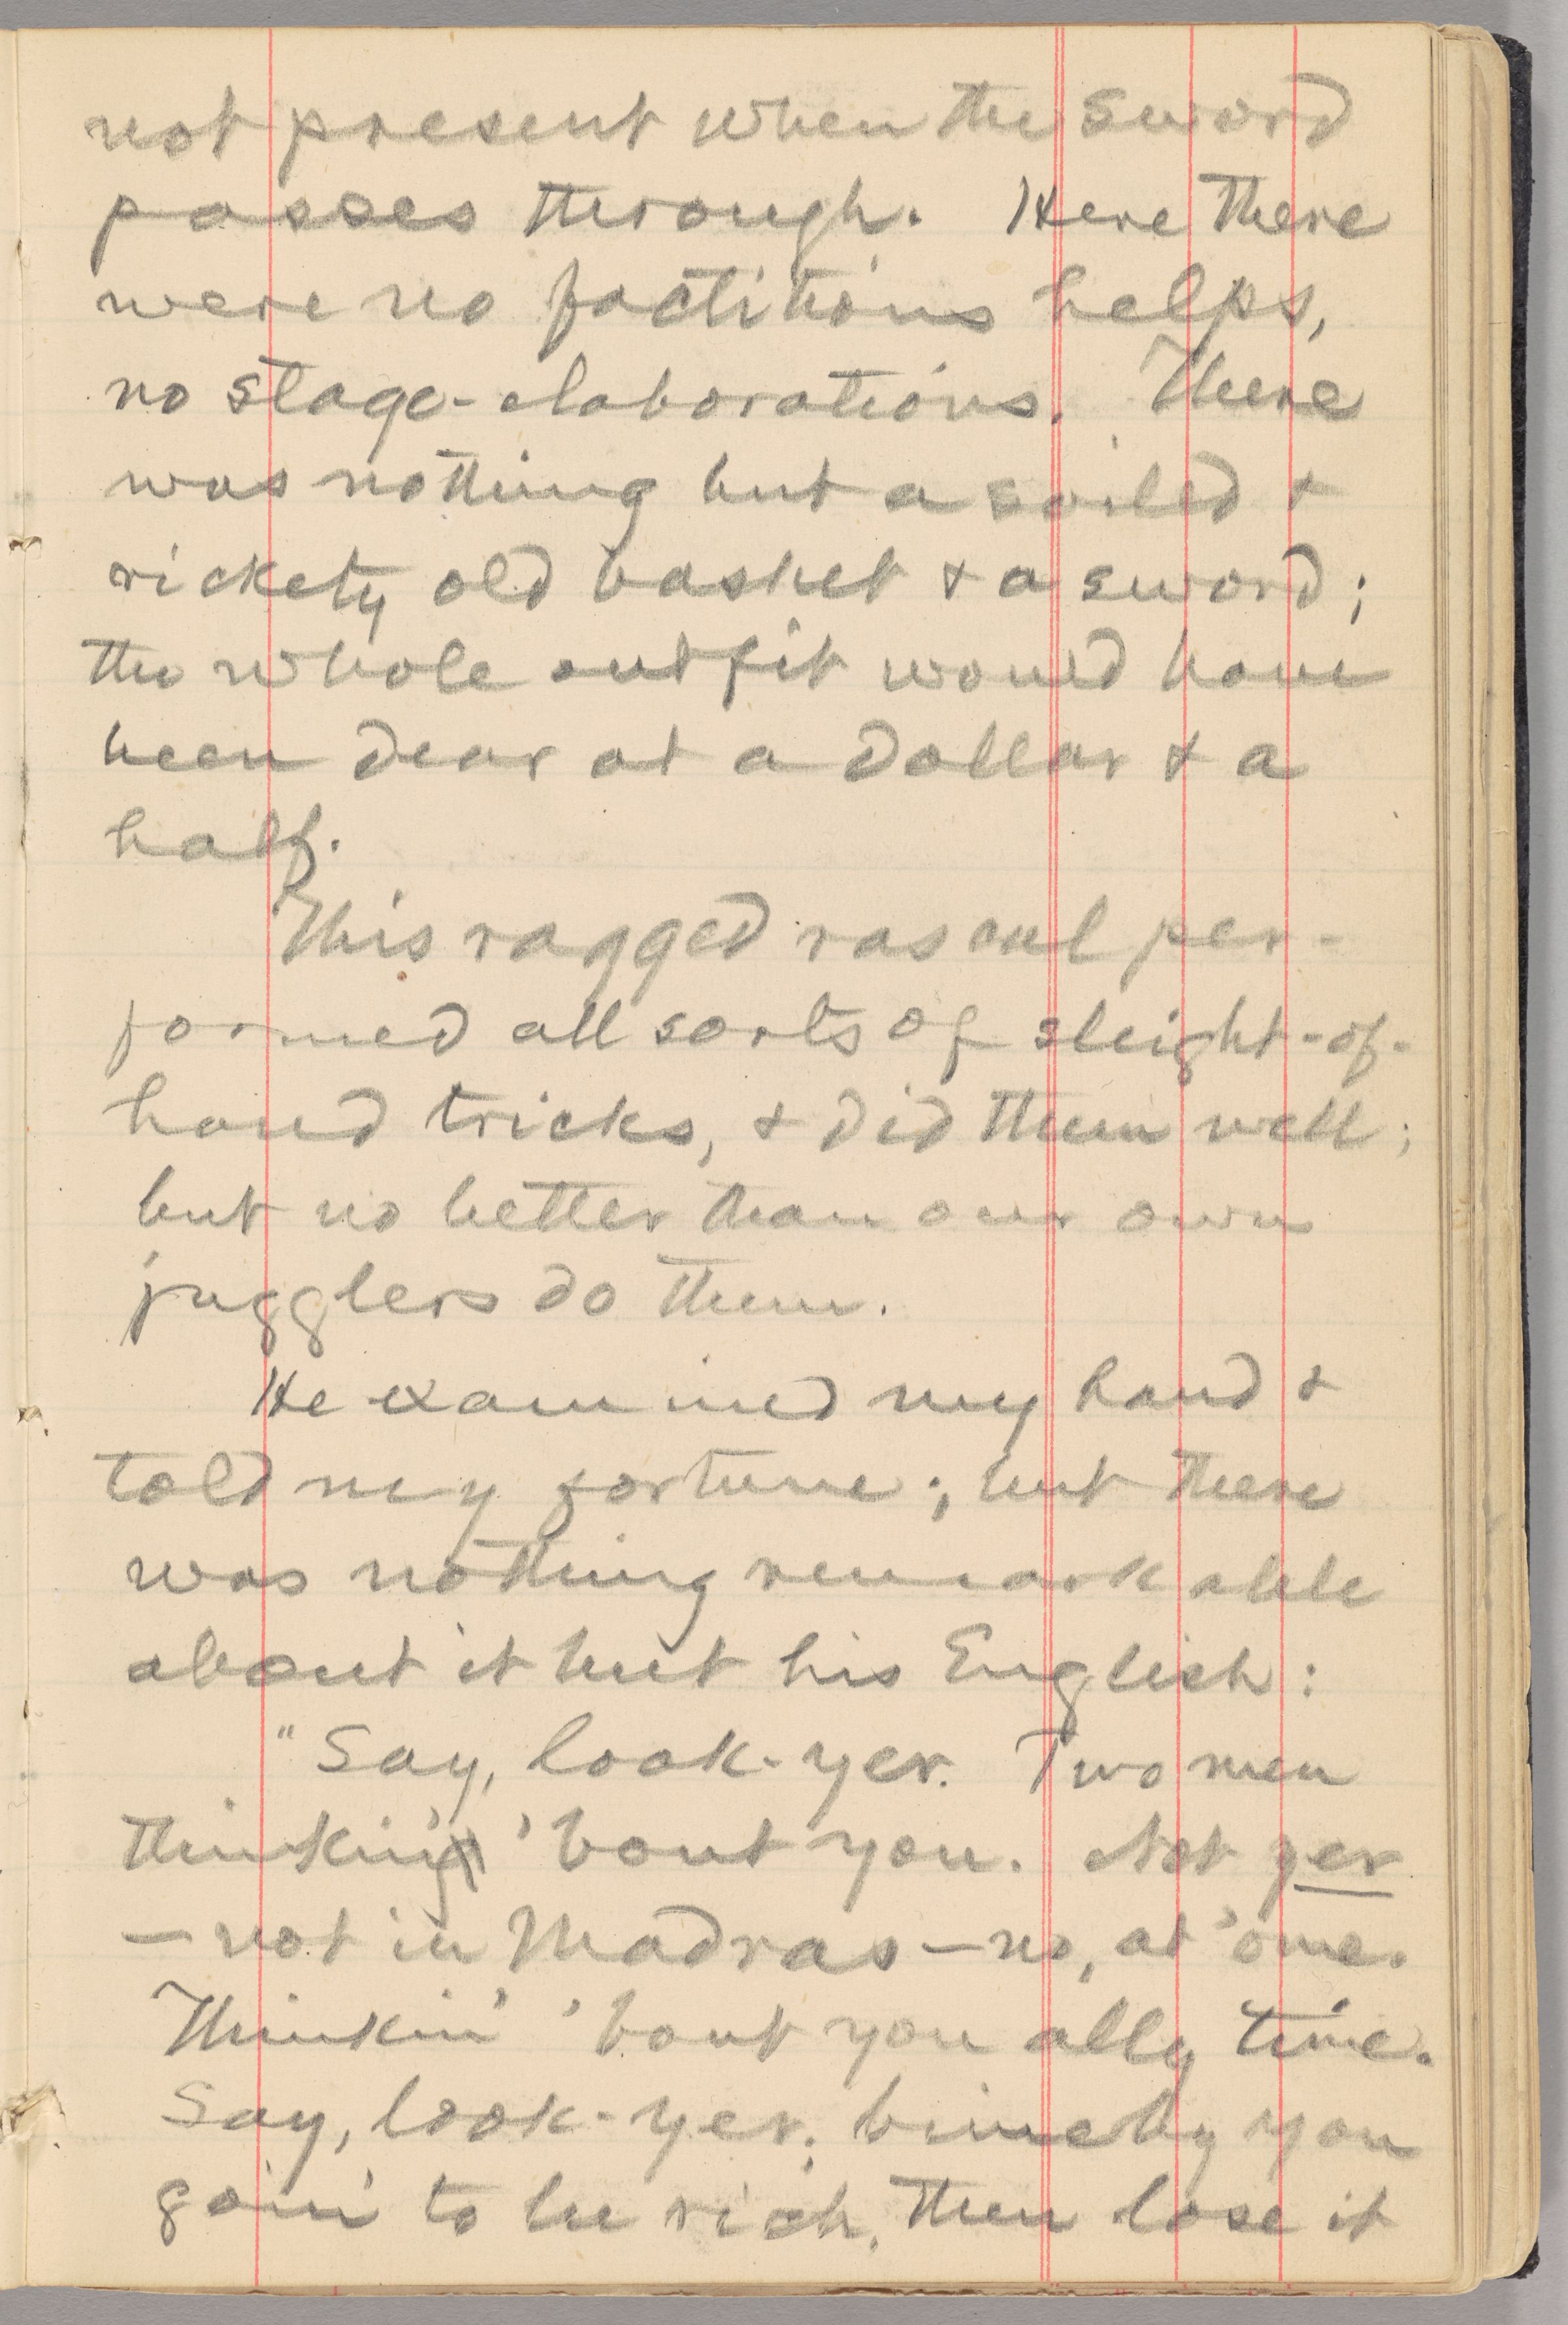 not present when the sword
passes through. Here there
were no factitious helps,
no stage-elaborations. There
was nothing but a soiled &
rickety old basket & a sword;
the whole outfit would have
been dear at a dollar & a
half.
This ragged rascal per-
formed all sorts of sleight-of-
hand tricks, & did them well;
but no better than our own
jugglers do them.
He examined my hand &
told my fortune; but there
was nothing remarkable
about it but his English:
"Say, look-yer. Two men
thinkin' 'bout you. Not yer
—not in Madras—no, at 'ome.
Thinkin' 'bout you ally time.
Say, look-yer; bimeby you
goin' to be rich, then lose it